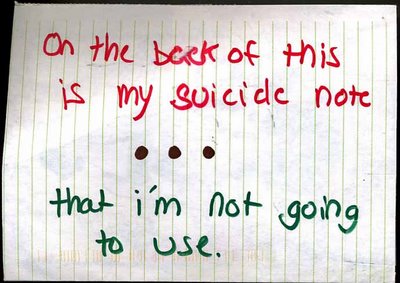 On the back of this
is my suicide note
...
that i'm not going
to use.